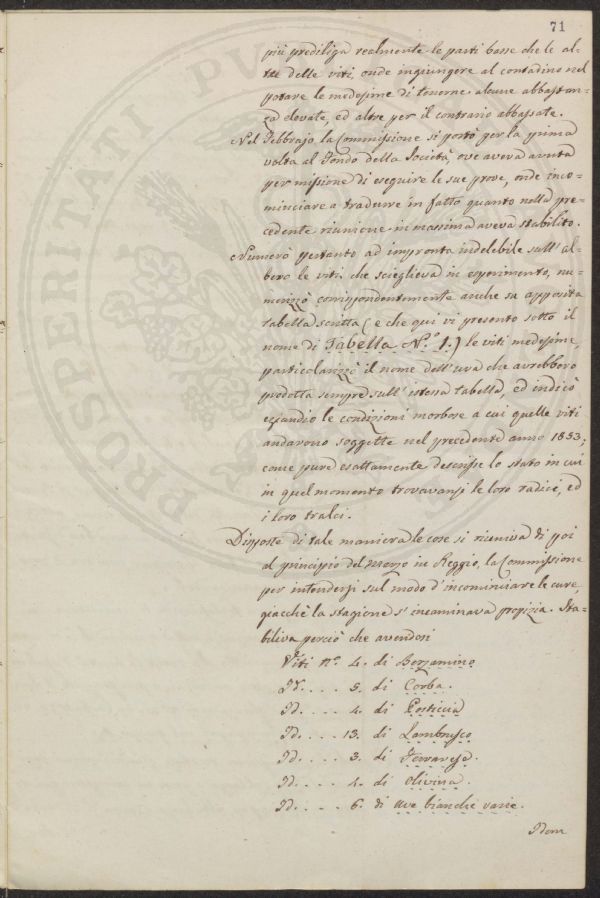 71
più prediliga realmente le parti basse che le al-
tre delle viti, onde ingiungere al contadino nel
potare le medesime di tenerne alcune abbastan-
za elevate, ed altre per il contrario abbassate.
Nel Febbrajo la Commissione si portò per la prima
volta al Fondo della Società, ove aveva avuta
permissione di eseguire le sue prove, onde inco-
minciare a tradurre in fatto quanto nella pre-
cedente riunione in massima aveva stabilito.
Numerò pertanto ad impronta indelebile sull'al-
bero le viti che scieglieva in esperimento, nu-
merizzò corrispondentemente anche su apposita
tabella scritta (e che qui vi presento sotto il
nome di Tabella N.º 1.) le viti medesime,
particolarizzò il nome dell'uva che avrebbero
prodotta sempre sull'istessa tabella, ed indicò
eziandio le condizioni morbose a cui quelle viti
andarono soggette nel precedente anno 1853;
come pure esattamente descrisse lo stato in cui
in quel momento trovavansi le loro radici, ed
i loro tralci.
Disposte di tale maniera le cose si riuniva di poi
al principio del marzo in Reggio, la Commissione
per intendersi sul modo d'incominciare le cure,
giacchè la stagione s'incaminava propizia. Sta-
biliva perciò che avendosi
Viti n.º 4. di Berzamino
Id. . . . 5. di Corba.
Id. . . . 4. di Posticcia
Id. . . . 13. di Lambrusco
Id. . . . 3. di Ferrarese.
Id. . . . 4. di Olivina.
Id. . . . 6. di uve bianche varie.
Idem
PRUDENTI PUBLICA